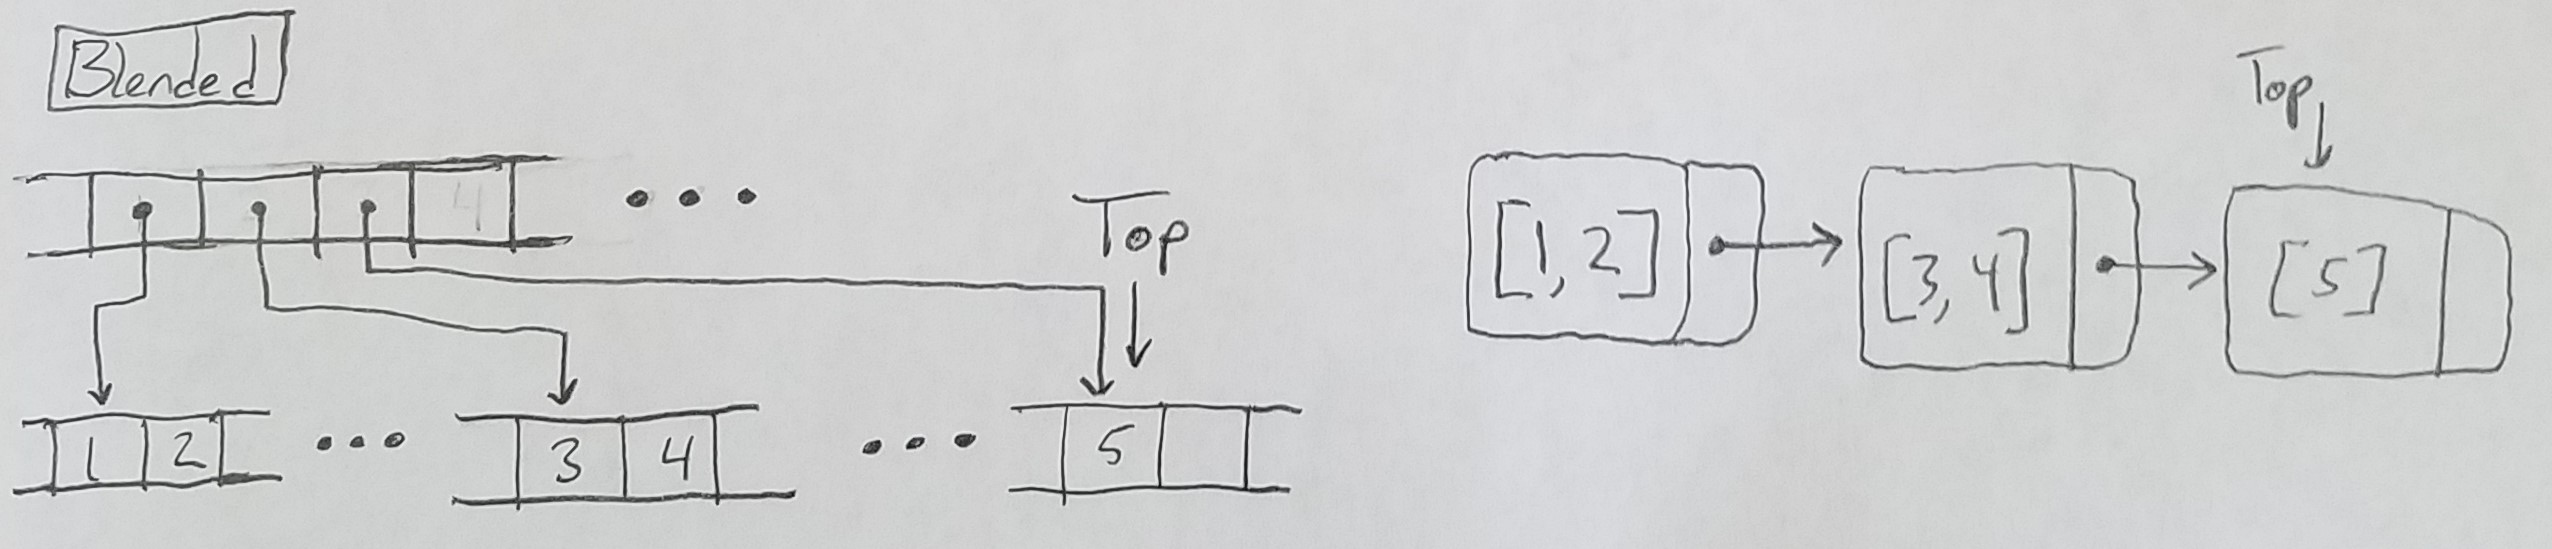 Blended
Top
[1, 2]
[3, 4]
[5]
4
Top
1 2
3 4
5